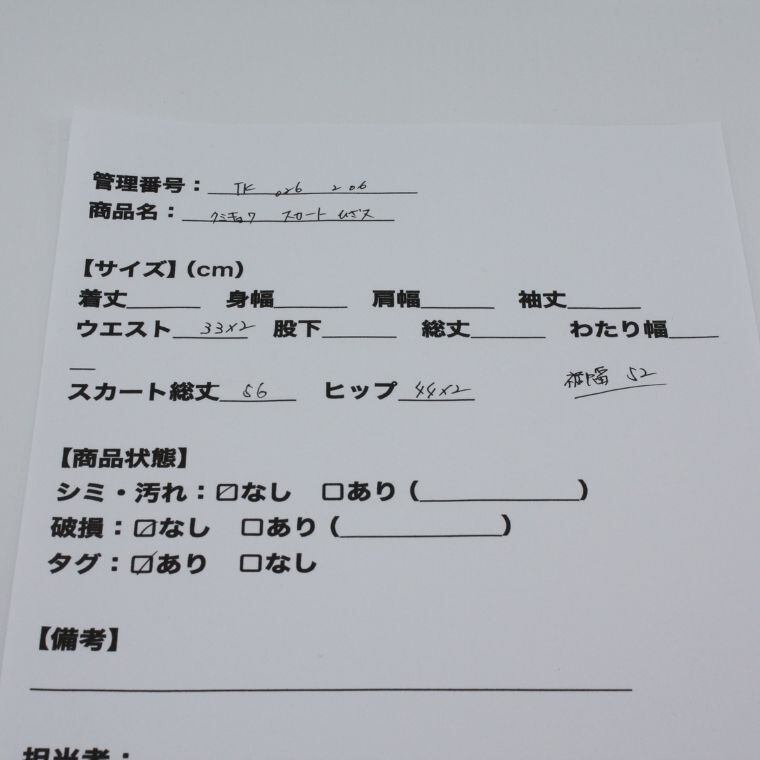 管理番号：TK 026 206
商品名：クミキョク スカート ひざス
【サイズ】（cm）
着丈______ 身幅______ 肩幅______ 袖丈______
ウエスト 33×2 股下______ 総丈______ わたり幅______
スカート総丈 56 ヒップ 44×2 裾幅 52
【商品状態】
シミ・汚れ：☑なし □あり（______________）
破損：☑なし □あり（______________）
タグ：☑あり □なし
【備考】
担当者：